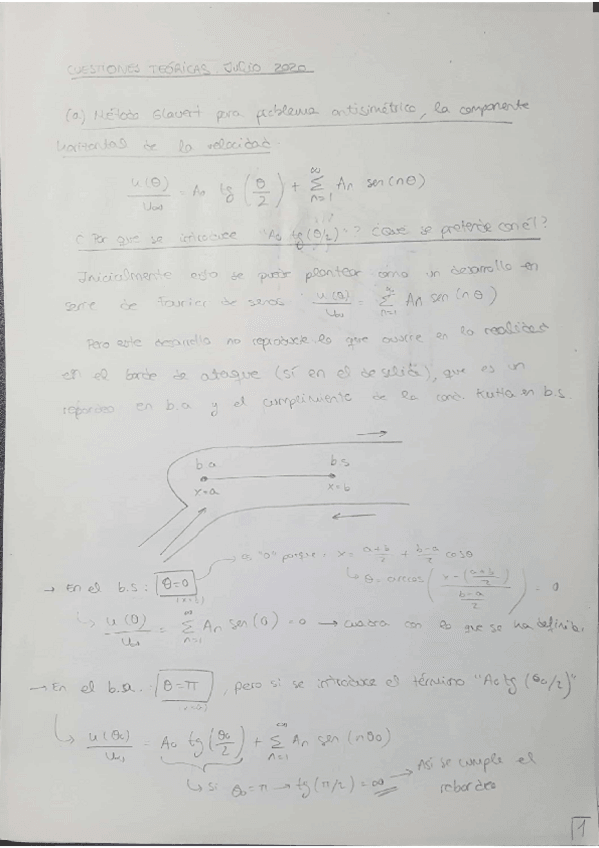 CUESTIONES TEÓRICAS. JULIO 2020
(a) Método Glavert para problema antisimétrico, la componente
horizontal de la velocidad.
u(θ)/U∞ = A₀ tg(θ/2) + Σ_{n=1}^{∞} An sen(nθ)
¿Por qué se introduce "A₀ tg(θ/2)"? ¿Qué se pretende con él?
Inicialmente esto se puede plantear como un desarrollo en
serie de Fourier de senos u(θ)/U∞ = Σ_{n=1}^{∞} An sen(nθ)
Pero este desarrollo no reproduce lo que ocurre en la realidad
en el borde de ataque (sí en el de salida), que es un
rebordeo en b.a y el cumplimiento de la cond. Kutta en b.s.
b.a b.s
x=a x=b
θ "0" porque: x = (a+b)/2 + (b-a)/2 cosθ
→ En el b.s: θ=0 ↳ θ = arccos((x-((a+b)/2))/((b-a)/2)) = 0
(x=b)
↳ u(θ)/U∞ = Σ_{n=1}^{∞} An sen(0) = 0 → cuadra con lo que se ha definido.
→ En el b.a. θ=π, pero si se introduce el término "A₀ tg(θ₀/2)"
↳ u(θ₀)/U∞ = A₀ tg(θ₀/2) + Σ_{n=1}^{∞} An sen(nθ₀)
↳ si θ₀=π → tg(π/2) = ∞ → Así se cumple el
rebordeo
1